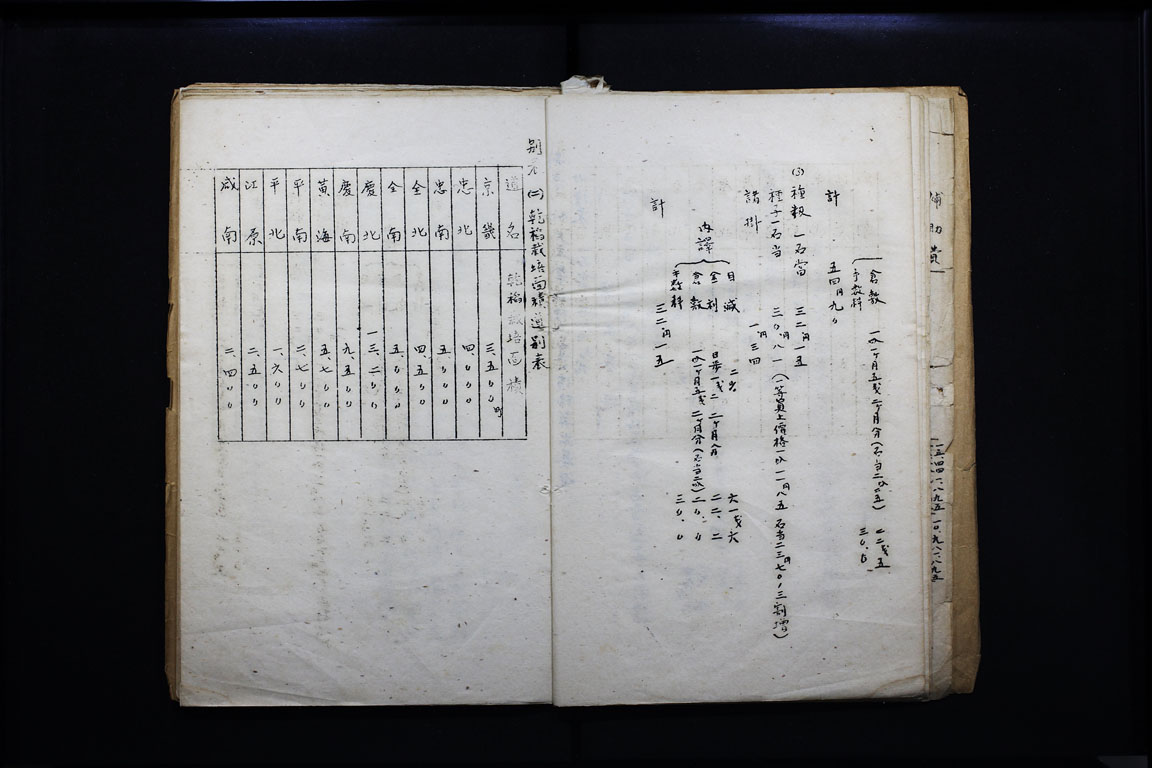 補助費
二五、四四一、八九五
一〇、九八一、八九五
倉敷 一叺一ヶ月五戋二ヶ月分(石当二叺二五) 二二戋五
手数料 三〇、〇
計 五四円九〇
(3) 種穀一石當 三二円一五
種子一石当 三〇円八一(一等買上價格一叺一一円八五 石当二三円七〇、三割増)
諸掛 一円三四
内譯
目減 二% 六一戋六
金利 日歩一戋二 二ヶ月分 二二、二
倉敷 一叺一ヶ月五戋 二ヶ月分(石当二叺) 二〇、〇
手数料 三〇、〇
計 三二円一五
別表(二) 乾稲栽培面積道別表
道名 乾稲栽培面積
京畿 三、五〇〇町
忠北 四、〇〇〇
忠南 五、〇〇〇
全北 四、五〇〇
全南 五、〇〇〇
慶北 一三、二〇〇
慶南 九、五〇〇
黄海 五、七〇〇
平南 二、七〇〇
平北 一、六〇〇
江原 二、五〇〇
咸南 二、四〇〇